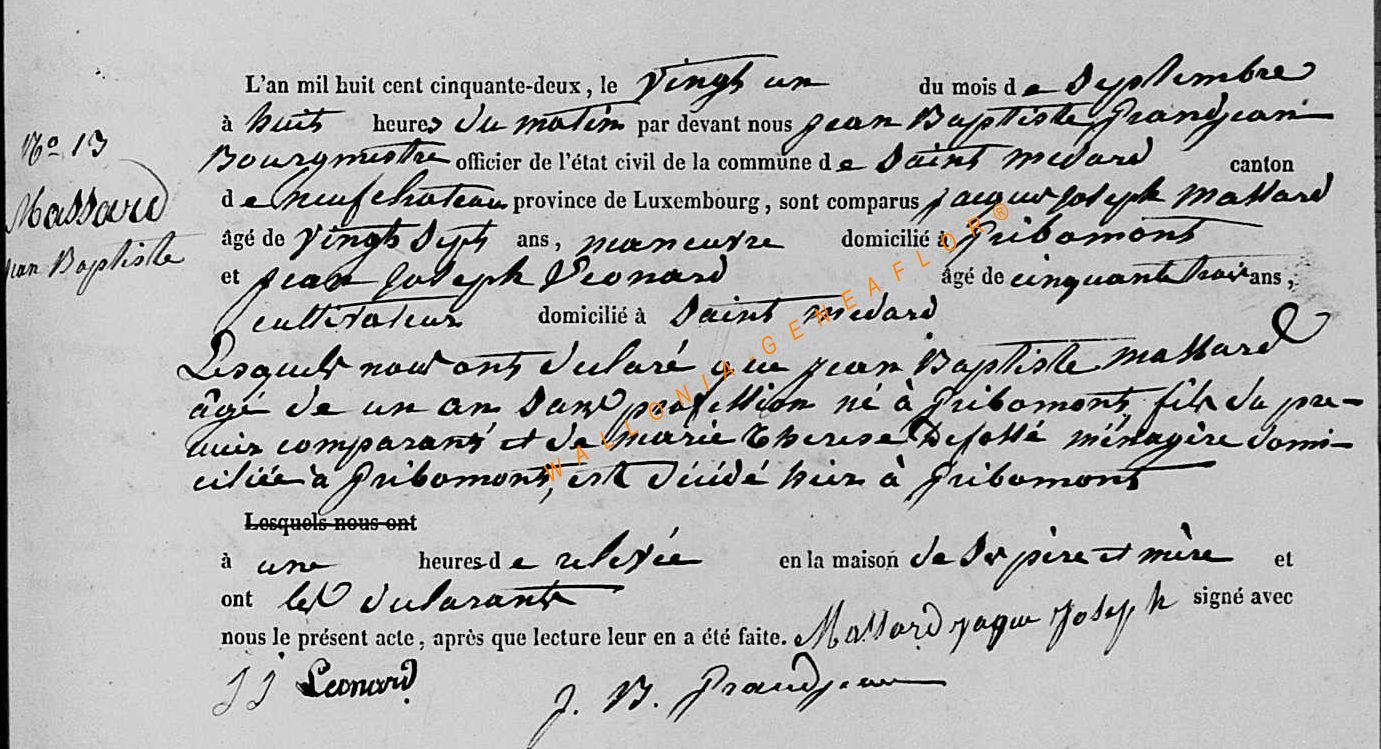 L'an mil huit cent cinquante-deux, le vingt un du mois de Septembre
à huit heures du matin par devant nous jean Baptiste Grandjean
Bourgmestre officier de l'état civil de la commune de Saint medard canton
de neufchateau province de Luxembourg, sont comparus jacques joseph Massard
âgé de vingt Sept ans, maneuvre domicilié à Gribomont
et jean joseph Leonard âgé de cinquante trois ans,
cultivateur domicilié à Saint medard
Lesquels nous ont declaré que jean Baptiste Massard
âgé de un an Sans profession né à Gribomont, fils du pre-
mier comparant et de marie Therese Defossé ménagère domi-
ciliée à Gribomont, est décédé hier à Gribomont
Lesquels nous ont
à une heures de relevée en la maison de Ses père et mère et
ont les declarants signé avec
nous le présent acte, après que lecture leur en a été faite. Massard jaque joseph
J J Leonard J. B. Grandjean
No 13
Massard
jean Baptiste
WALLONIA-GENEAFLOR®